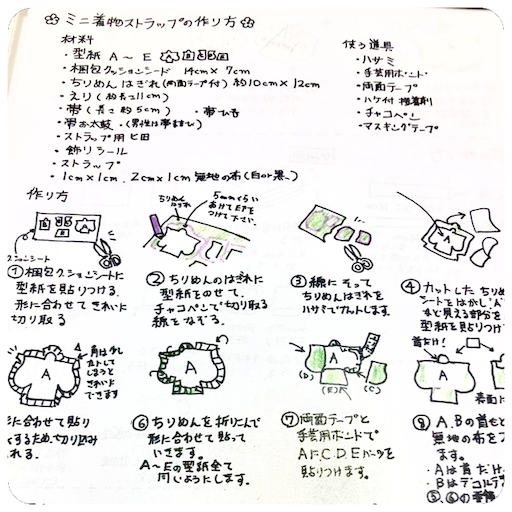 ミニ着物ストラップの作り方
材料
・型紙 A～E
・梱包クッションシート 14cm×7cm
・ちりめんはぎれ(両面テープ付)約10cm×12cm
・えり(約長さ11cm)
・帯(長さ約5cm) ・帯ひも
・帯お太鼓・(男性は帯まむすび)
・ストラップ用ヒモ
・飾りシール
・ストラップ
・1cm×1cm、2cm×1cm 無地の布(白or黒)
使う道具
・ハサミ
・手芸用ボンド
・両面テープ
・ハケ付接着剤
・チャコペン
・マスキングテープ
作り方
A
クッションシート
①梱包クッションシートに
型紙を貼りつける。
形に合わせてきれいに
切り取る
ちりめん
はぎれ
5mmくらい
あけて
つけて下さい
②ちりめんのはぎれに
型紙をのせて、
チャコペンで切り取る
線をなぞる。
③線にそって
ちりめんはぎれを
ハサミでカットします。
A
④カットしたちり
シートをはがし「A」
すと見える部分を
型紙を貼りつけ
A
角は少し
きれいに
できます
形に合わせて貼り
するため、切り込み
れる。
A
⑥ちりめんを折りこんで
形に合わせて貼って
いきます。
A～Eの型紙全て
同じようにします。
A
(D)
(E)
(C)
⑦両面テープと
手芸用ボンドで
AにC,D,Eパーツを
貼りつけます。
首だけ!
A
表面に
⑧A,Bの首も
無地の布を
ます。
・Aは首だけ
・Bはデコルテ
⑤,⑥の